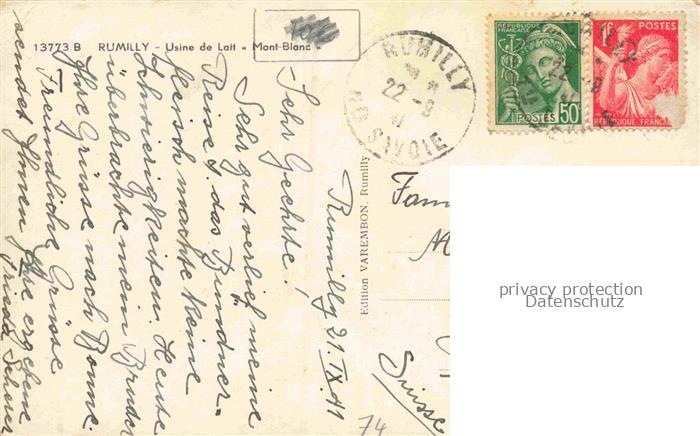 13773 B   RUMILLY - Usine de Lait « Mont-Blanc »
RUMILLY
22 -9
41
HTE SAVOIE
REPUBLIQUE FRANÇAISE
50c
POSTES
1F POSTES
REPUBLIQUE FRANÇAISE
Edition VAREMBON, Rumilly
Rumilly 21. IX. 41
Sehr Geehrte!
Sehr gut verlief meine
Reise u. das Bündner-
fleisch machte keine
Schwierigkeiten. Heute
überbrachte mein Bruder
Ihre Grüsse nach Bonne.
Freundliche Grüsse
sendet Ihnen Ihre ergebene
Frieda Scherer
Fam
Suisse
74
privacy protection
Datenschutz